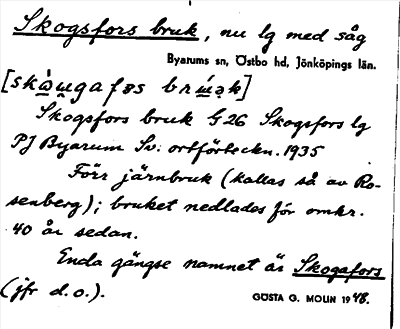 Skogsfors bruk, nu lg med såg
Byarums sn, Östbo hd, Jönköpings län.
Skogsfors bruk G26 Skogsfors lg
PJ Byarum Sv: ortförteckn. 1935
Förr järnbruk (kallas så av Ro-
senberg); bruket nedlades för omkr.
40 år sedan.
Enda gängse namnet är Skogafors
(jfr d.o.).
GÖSTA G. MOLIN 1948.